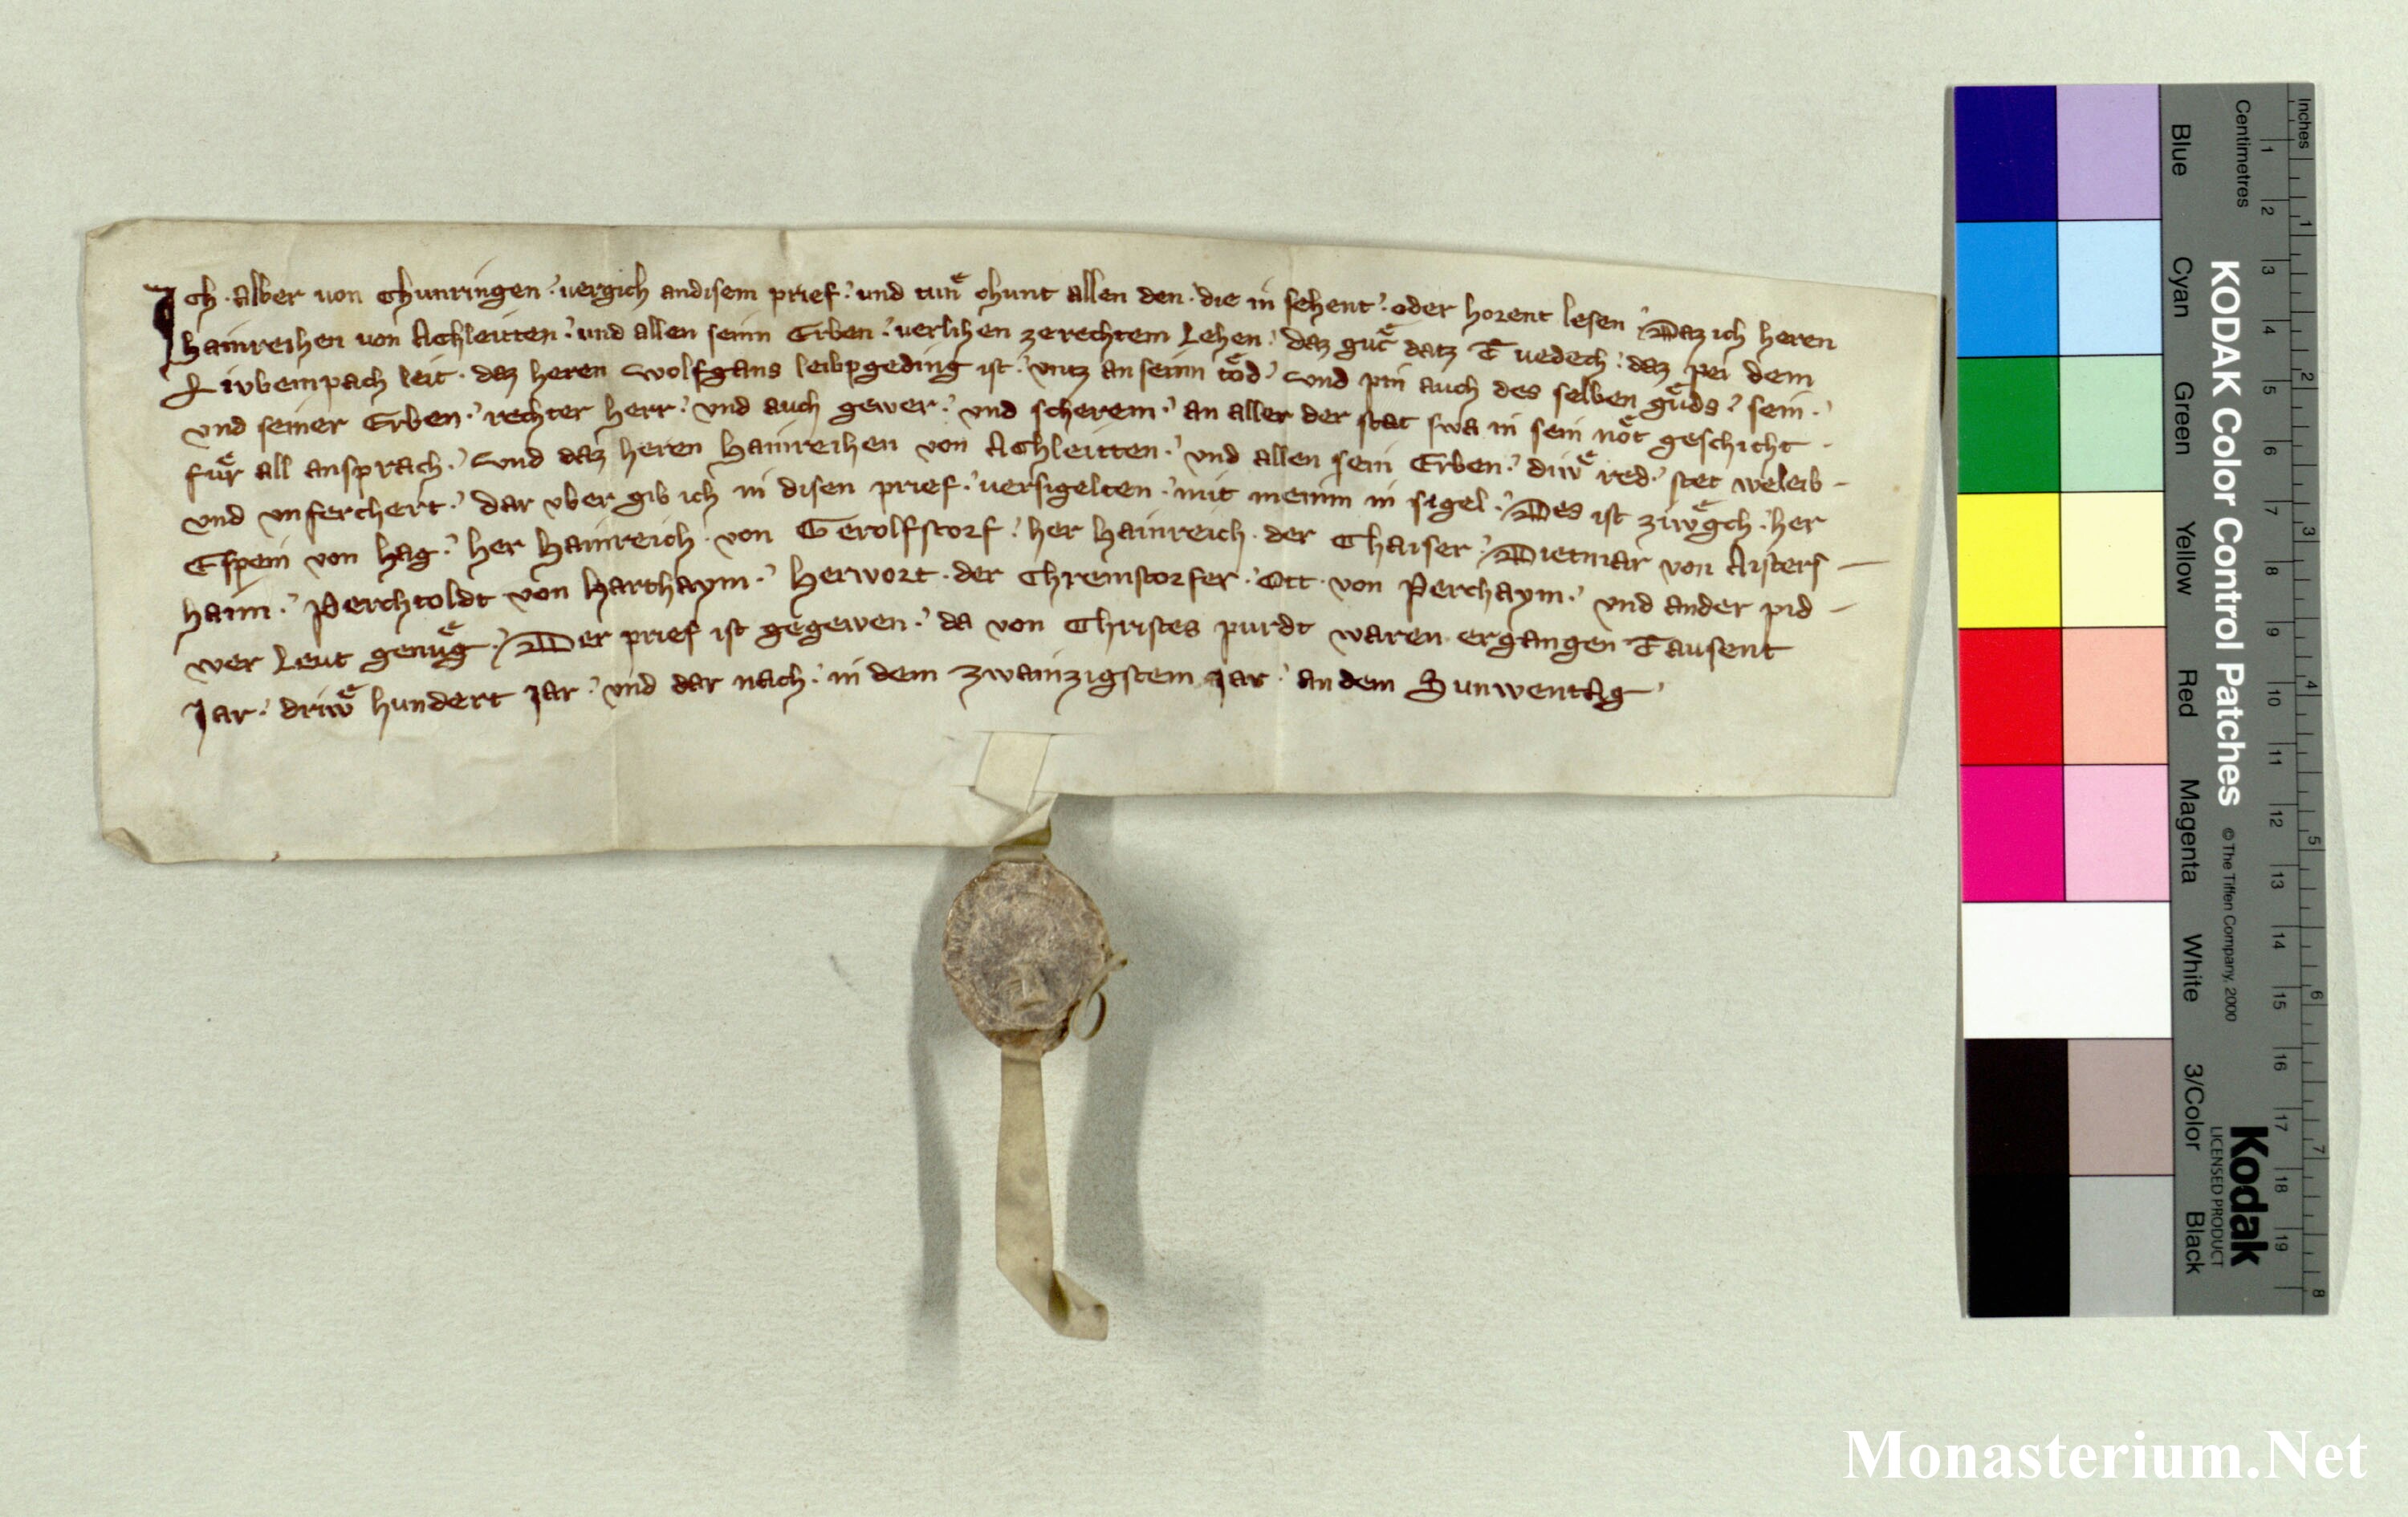 Ich · Alber von Chunringen · vergich andisem prief · und tuͤn chunt allen den · die in sehent · oder horent lesen · Daz ich heren
Hainreihen von Achleitten · und allen seinn Erben · verlihen zerechtem Lehen · daz guͤt datz Tuedech · daz pei dem
Livbempach leit · daz heren Wolfgans leibpgeding ist · vntz an seinn toͤd · Und pin auch des selben guͤds · sein ·
vnd seiner Erben · rechter herr · vnd auch gewer · vnd scherem · an aller der stat swa in sein noͤt geschicht ·
fuͤr all ansprach · Und daz heren Hainreihen von Achleitten · vnd allen sein Erben · diwͤ red · stet weleib -
vnd vnferchert · dar vber gib ich in disen prief · versigelten · mit meinim in sigel · Des ist ziwͤgch · her
Espein von Hag · her Hainreich · von Gerolfstorf · her Hainreich · der Chaiser · Dietmar von Aisters -
haim · Perchtoldt von Harthaym · Herwort · der Chremstorfer · Ott · von Perchaym · vnd ander pid -
wer Leut genuͤg · Der prief ist gegewen · da von Christes purdt waren ergangen Tausent
Jar · driwͤ hundert Jar · vnd dar nach · in dem zwainzigstem Jar · an dem Sunwentag
Inches
Centimetres
1 2 3 4 5 6 7 8
1 2 3 4 5 6 7 8 9 10 11 12 13 14 15 16 17 18 19
KODAK Color Control Patches
© The Tiffen Company, 2000
Kodak
LICENSED PRODUCT
Blue
Cyan
Green
Yellow
Red
Magenta
White
3/Color
Black
Monasterium.Net